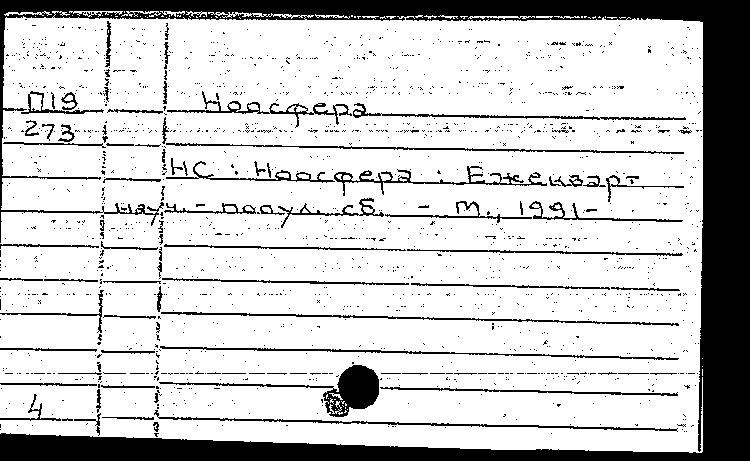 П19 Ноосфера
273
НС : Ноосфера : Ежекварт.
науч. - попул. сб. - М., 1991-
4